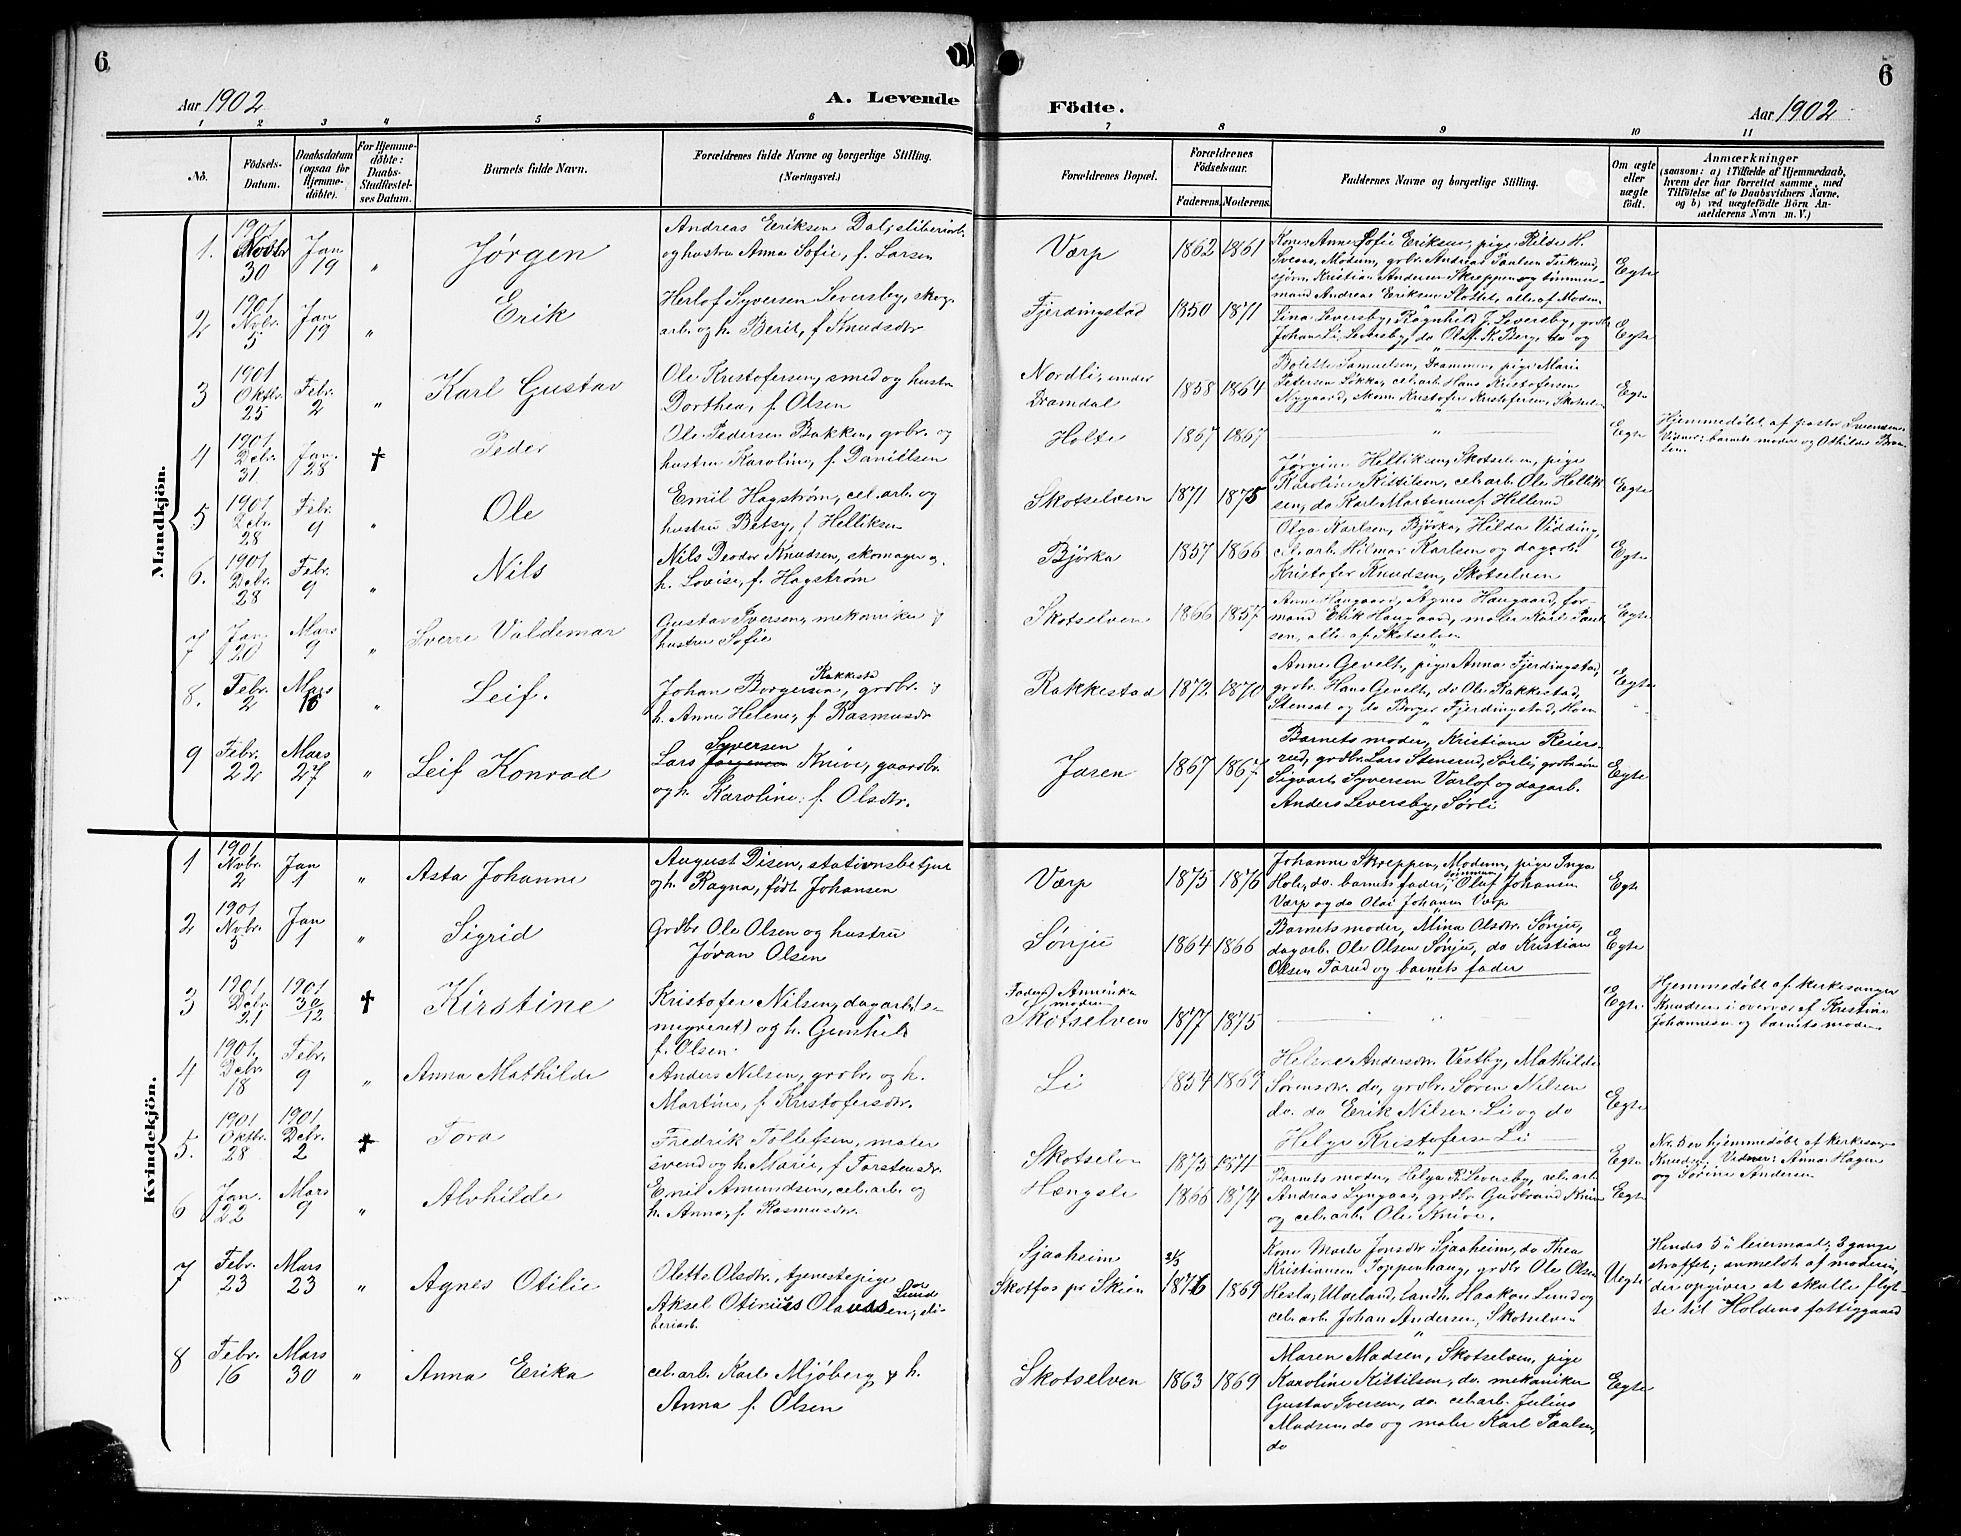 6
Aar 1902
A. Levende
Födte.
Aar 1902
6
1 2 3 4 5 6 7 8 9 10 11
No.
Födsels-Datum.
Daabsdatum (ogsaa for Hjemmedöbte).
For Hjemmedöbte: Daabs-Stadfæstelses Datum.
Barnets fulde Navn.
Forældrenes fulde Navne og borgerlige Stilling. (Næringsvei.)
Forældrenes Bopæl.
Forældrenes Födselsaar.
Faderens. Moderens.
Faddernes Navne og borgerlige Stilling.
Om ægte eller uægte födt.
Anmærkninger
(saasom: a) i Tilfælde af Hjemmedaab, hvem der har forrettet samme, med Tilföielse af to Daabsvidners Navne. og b) ved uægtefödte Börn Anmelderens Navn m. V.)
Mandkjön.
1. 1901 Novbr 30 Jan 19 " Jørgen
Andreas Eriksen Dal, sliberiarb.
og hustru Anna Sofie, f. Larsen
Værp 1862 1861
Egte
2 1901 Nvbr. 5 Jan 19 " Erik
Herlof Syversen Leversby, skog-
arb. og h. Berit, f. Knudsdtr
Fjerdingstad 1850 1871
Lina Leversby, Ragnhild J. Leversby, grdbr
Johan Li, Leversby, do Olaf K. Berg, do og
Egte
3 1901 Oktbr. 25 Febr. 2 " Karl Gustav
Ole Kristofersen, smed og hustru
Dorthea, f. Olsen
Nordli, under
Dramdal 1858 1864
Bolette Samuelsen, Drammen, pige Marie
Petersen Løkka, cel.arb. Hans Kristofersen
Nygaard, skom. Kristofer Kristofersen, Skotselven
Egte
4 1901 Debr. 31 Jan. 28 † Peder
Ole Pedersen Bakken, grbr. og
hustru Karoline, f. Daniellsen
Holte 1867 1867
Egte
Hjemmedøbt af pastor Svendsen
Vidner: barnets moder og Othilde
5 1901 Debr. 28 Febr. 9 " Ole
Emil Hagstrøm, cel.arb. og
hustru Betsy, f Helliksen
Skotselven 1871 1875
Jørgine Helliksen, Skotselven, pige
Karoline Kittilsen, cel.arb. Ole Hellik-
sen, do Karl Martinius f. Hellerud
Egte
6. 1901 Debr. 28 Febr. 9 " Nils
Nils Peder Knudsen, skomager og
h. Lovise, f. Hagstrøm
Bjørka 1857 1866
Olga Karlsen, Bjørka, Hilda Vidding,
cel.arb. Hilmar Karlsen og dagarb.
Kristofer Knudsen, Skotselven
Egte
7 Jan. 20 Mars 9 " Sverre Valdemar
Gustav Iversen, mekaniker &
hustru Sofie
Skotselven 1866 1857
Anne Haugaard, Agnes Haugaard, for-
mand Erik Haugaard, maler Karl Paul-
sen, alle af Skotselven
Egte
8. Febr. 2 Mars 16 " Leif.
Johan Borgersen Rakkestad, grdbr. &
h. Anne Helene, f. Rasmusdtr
Rakkestad 1872 1870
Anne Gevelt, pige Anna Fjerdingstad,
grdbr. Hans Gevelt, do Ole Rakkestad,
Stensat og do Borger Fjerdingstad, Hoen
Egte
9 Febr. 22 Mars 27 " Leif Konrad
Lars Syversen Knive, gaardbr.
og h. Karoline, f. Olsdtr.
Jaren 1867 1867
Barnets moder, Kristiane Reiers-
rud, grdbr. Lars Stensrud, Sørli, grdb.søn
Sigvart Syversen Varlof og dagarb.
Anders Leversby, Sørli
Egte
Kvindekjön.
1 1901 Nvbr. 2 Jan 1 " Asta Johanne
August Disen, stationsbetjent
og h. Ragna, født Johansen
Værp 1875 1876
Johanne Skreppen, Modum, pige Inga
Hole, do. barnets fader, tømmerm. Olaf Johansen
Værp og do Olai Johansen Værp
Egte
2 1901 Nvbr. 5 Jan 1 " Sigrid
Grdbr Ole Olsen og hustru
Jøran Olsen
Sønju 1864 1866
Barnets moder, Mina Olsdtr. Sønju,
dagarb. Ole Olsen Sønju, do Kristian
Olsen Torud og barnets fader
Egte
3 1901 Debr. 21 1901 30/12 † Kirstine
Kristofer Nilsen, dagarb. (e-
migreret) og h. Gunhild
f. Olsen.
Faderen Amerika
moderen
Skotselven 1877 1875
Egte
Hjemmedøbt af kirkesanger
Knudsen i overvær af Kristine
Johannesen og barnets moder
4 1901 Debr. 18 Febr. 9 " Anna Mathilde
Anders Nilsen, grdbr. og h.
Martine, f. Kristofersdtr.
Li 1854 1869
Helene Andersdtr. Vestby, Mathilde
Sørensdtr. do, grdbr. Søren Nilsen
do. do Erik Nilsen Li og do
Helge Kristofersen Li
Egte
5. 1901 Oktbr. 28 1901 Debr. 2 † Tora
Fredrik Tollefsen, maler
svend og h. Marie, f. Torstensdtr.
Skotselven 1873 1871
Egte
Nr. 5 er hjemmedøbt af kirkesanger
Knudsen, Vidner: Anna Hagen
og Sørine Andersen
6 Jan. 22 Mars 9 " Alvhilde
Emil Amundsen, cel.arb. og
h. Anna, f. Rasmusdtr.
Hængsle 1866 1874
Barnets moder, Helga R. Leversby, cel.arb.
Andreas Lyngaas, grdbr Gudbrand Knive
og cel.arb. Ole Knive.
Egte
7 Febr. 23 Mars 23 " Agnes Otilie
Olette Olsdtr., tjenestepige
Aksel Otinius Olaussen Lund, sli-
beriarb.
Sjaaheim
Skotfos pr Skien 1876 1869
Kone Marte Jonsdtr Sjaaheim, do Thea
Kristiansen Toppenhaug, grdbr Ole Olsen
Hesla, Uleland, landh. Haakon Lund og
cel.arb. Johan Andersen, Skotselven
Uegte
Hendes 3' leiermaal; 3 gange
straffet; anmeldt af moderen,
der opgiver at skulle flyt-
te til Holdens fattiggaard
8 Febr. 16 Mars 30 " Anna Erika
cel.arb. Karl Mjøberg & h.
Anna f. Olsen
Skotselven 1863 1869
Maren Madsen, Skotselven, pige
Karoline Kittilsen, do. mekaniker
Gustav Iversen, do. cel.arb. Julius
Madsen, do og maler Karl Paulsen,
do
Egte